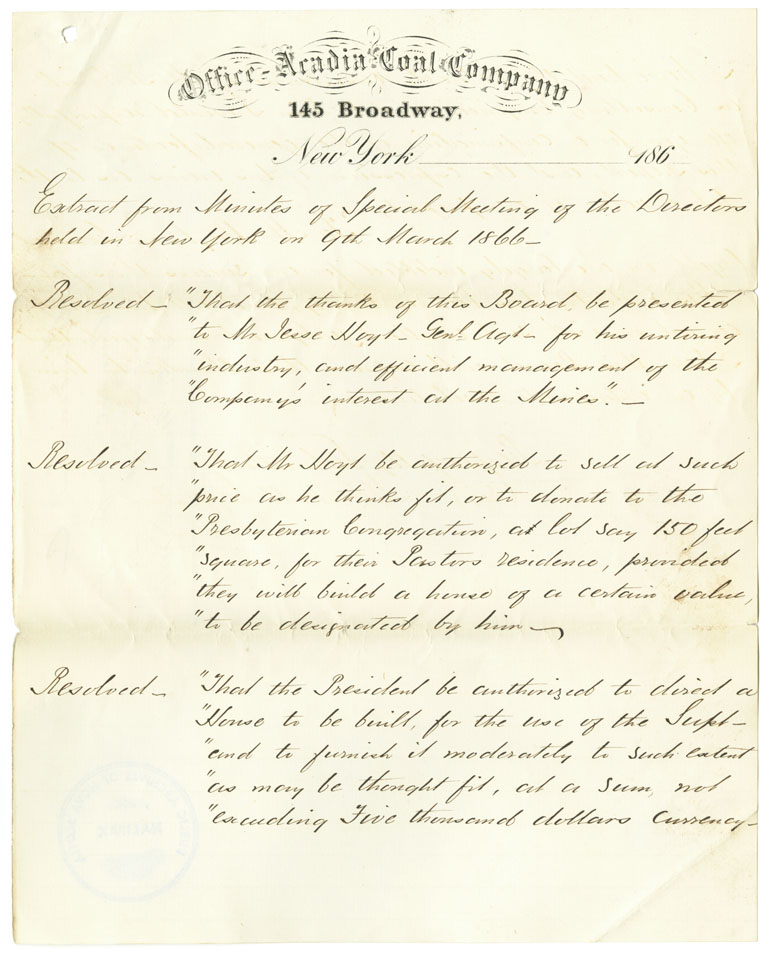 Office - Acadia Coal Company
145 Broadway,
New York 186
Extract from Minutes of Special Meeting of the Directors
held in New York on 9th March 1866 -
Resolved - "That the thanks of this Board, be presented
"to Mr Jesse Hoyt - Genl. Agt - for his untiring
"industry, and efficient management of the
"Company's interest at the Mines". -
Resolved - "That Mr Hoyt be authorized to sell at such
"price as he thinks fit, or to donate to the
"Presbyterian Congregation, a lot say 150 feet
"square, for their Pastors residence, provided
"they will build a house of a certain value,
"to be designated by him -
Resolved - "That the President be authorized to direct a
"House to be built, for the use of the Supt -
"and to furnish it moderately to such extent
"as may be thought fit, at a sum, not
"exceeding Five thousand dollars currency -